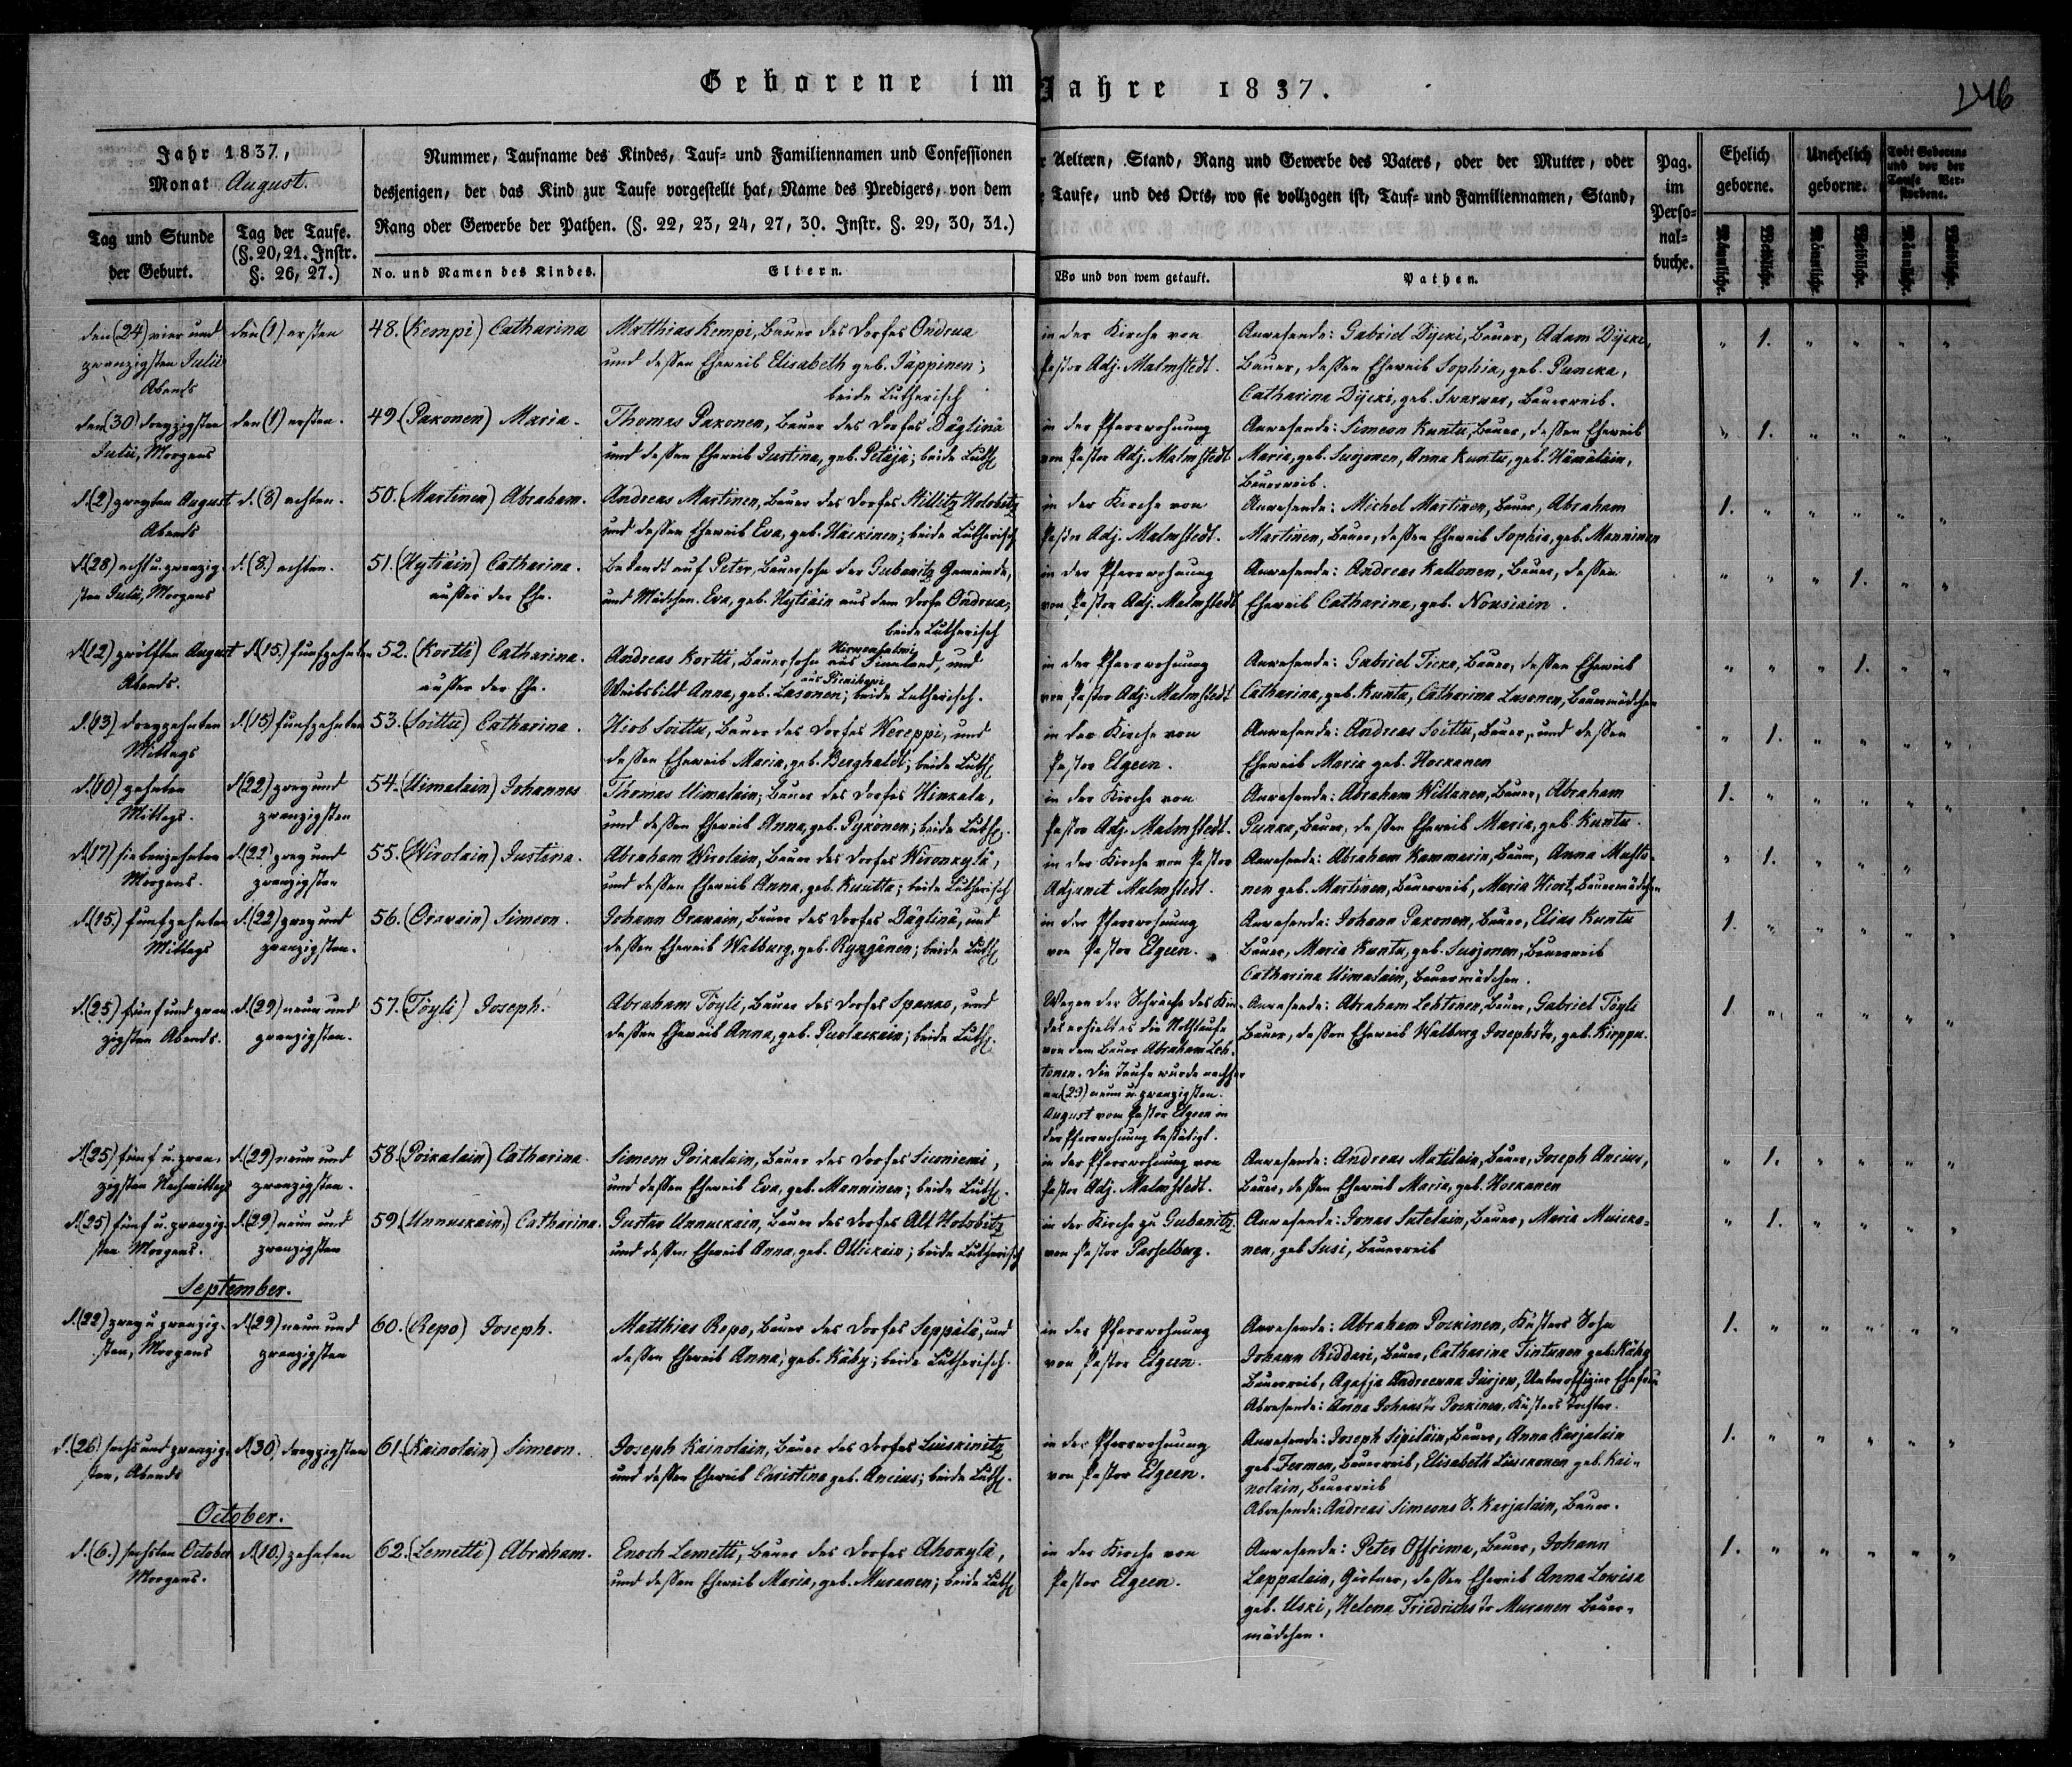 Geborene im Jahre 1837.
246
Jahr 1837,
Monat August.
Tag und Stunde
der Geburt.
Tag der Taufe.
(§. 20, 21. Instr.
§. 26, 27.)
Nummer, Taufname des Kindes, Tauf- und Familiennamen und Confessionen
desjenigen, der das Kind zur Taufe vorgestellt hat, Name des Predigers, von dem
Rang oder Gewerbe der Pathen. (§. 22, 23, 24, 27, 30. Instr. §. 29, 30, 31.)
No. und Namen des Kindes.
Eltern.
r Aeltern, Stand, Rang und Gewerbe des Vaters, oder der Mutter, oder
e Taufe, und des Orts, wo sie vollzogen ist, Tauf- und Familiennamen, Stand,
Wo und von wem getauft.
Pathen.
Pag.
im
Perso-
nal-
buche.
Ehelich
geborne.
Unehelich
geborne.
Todt Geborene
und vor der
Taufe Ver-
storbene.
Männliche.
Weibliche.
Männliche.
Weibliche.
Männliche.
Weibliche.
den (24) vier und
zwanzigsten Julii
Abends
den (1) ersten
48. (Kempi) Catharina
Matthias Kempi, Bauer des Dorfes Ondrua
und dessen Eheweib Elisabeth geb. Jäppinen;
beide Lutherisch
in der Kirche von
Pastor Adj. Malmstedt.
Anwesende: Gabriel Dijcki, Bauer, Adam Dijcki,
Bauer, dessen Eheweib Sophia, geb. Puncka,
Catharina Dijcki, geb. Bauerweib.
" 1. " " " "
den (30) dreyzigsten
Julii, Morgens
den (1) ersten.
49. (Paxonen) Maria.
Thomas Paxonen, Bauer des Dorfes Däglinä
und dessen Eheweib Justina, geb. Petäjä; beide Luth.
in der Pfarrwohnung
von Pastor Adj. Malmstedt
Anwesende: Simeon Kuntu, Bauer, dessen Eheweib
Maria, geb. Susjonen, Anna Kuntu, geb. Hämäläin,
Bauerweib.
" 1. " " " "
d. (2) zweyten August
Abends
d. (8) achten.
50. (Martinen) Abraham.
Andreas Martinen, Bauer des Dorfes Killitz Holobitz
und dessen Eheweib Eva, geb. Häckinen; beide Lutherisch
in der Kirche von
Pastor Adj. Malmstedt.
Anwesende: Michel Martinen, Bauer, Abraham
Martinen, Bauer, dessen Eheweib Sophia, geb. Manninen
1. " " " " "
d. (28) acht u. zwanzig-
sten Julii, Morgens
d. (8.) achten.
51. (Hytiäin) Catharina.
außer der Ehe.
bekandt auf Peter, Bauersohn der Gubanitz Gemeinde,
und Mädchen Eva, geb. Hytiäin aus dem Dorfe Ondrua,
beide Lutherisch
in der Pfarrwohnung
von Pastor Adj. Malmstedt
Anwesende: Andreas Kallonen, Bauer, dessen
Eheweib Catharina, geb. Nousiain.
" " " 1. " "
d. (12) zwölften August
Abends.
d. (15.) funfzehnten
52. (Kortti) Catharina.
außer der Ehe.
Andreas Kortti, Bauersohn aus Finnland, und
Weibsbild Anna, geb. Lasonen; beide Lutherisch.
in der Pfarrwohnung
von Pastor Adj. Malmstedt
Anwesende: Gabriel Ticka, Bauer, dessen Eheweib
Catharina, geb. Kuntu, Catharina Lasonen, Bauermädchen
" " " 1. " "
d. (13) dreyzehnten
Mittags
d. (15) funfzehnten
53. (Soittu) Catharina.
Hiob Soittu, Bauer des Dorfes Wereppi, und
dessen Eheweib Maria, geb. Berghaldt; beide Luth.
in der Kirche von
Pastor Elgeen.
Anwesende: Andreas Soittu, Bauer, und dessen
Eheweib Maria geb. Horkanen
" 1. " " " "
d. (10) zehnten
Mittags.
d. (22) zwey und
zwanzigsten
54. (Uimalain) Johannes
Thomas Uimalain, Bauer des Dorfes Hinkala,
und dessen Eheweib Anna, geb. Pyxönen; beide Luth.
in der Kirche von
Pastor Adj. Malmstedt.
Anwesende: Abraham Willanen, Bauer, Abraham
Punka, Bauer, dessen Eheweib Maria, geb. Kuntu.
1. " " " " "
d. (17) siebenzehnten
Morgens.
d. (22) zwey und
zwanzigsten
55. (Wirolain) Justina.
Abraham Wirolain, Bauer des Dorfes Wironkylä,
und dessen Eheweib Anna, geb. Kuutta; beide Lutherisch
in der Kirche von Pastor
Adjunct Malmstedt.
Anwesende: Abraham Kammarin, Bauer, Anna Musto-
nen geb. Martinen, Bauerweib, Maria Hiort, Bauermädchen
" 1. " " "
d. (15.) funfzehnten
Mittags
d. (22) zwey und
zwanzigsten.
56. (Orawain) Simeon.
Johann Orawain, Bauer des Dorfes Däglinä, und
dessen Eheweib Walburg, geb. Rynxänen; beide Luth.
in der Pfarrwohnung
von Pastor Elgeen.
Anwesende: Johann Paxonen, Bauer, Elias Kuntu
Bauer, Maria Kuntu, geb. Susjonen, Bauerweib
Catharina Uimalain, Bauermädchen.
1. " " " " "
d. (25.) fünf und zwan-
zigsten Abends.
d. (29) neun und
zwanzigsten.
57. (Töyli) Joseph.
Abraham Töyli, Bauer des Dorfes Spanko, und
dessen Eheweib Anna, geb. Puolackain; beide Luth.
Wegen der Schwäche des Kin-
des erhielt es die Nothtaufe
von dem Bauer Abraham Leh-
tonen. Die Taufe wurde nachher
am (29) neun u. zwanzigsten
August vom Pastor Elgeen in
der Pfarrwohnung bestätigt.
Anwesende: Abraham Lehtonen, Bauer, Gabriel Töyli
Bauer, dessen Eheweib Walburg Josephstr, geb. Kirppu.
1. " " " " "
d. (25.) fünf u. zwan-
zigsten Nachmittags
d. (29) neun und
zwanzigsten.
58. (Poikalain) Catharina.
Simeon Poikalain, Bauer des Dorfes Suoniemi,
und dessen Eheweib Eva, geb. Manninen; beide Luth.
in der Pfarrwohnung von
Pastor Adj. Malmstedt.
Anwesende: Andreas Matilain, Bauer, Joseph Ancius,
Bauer, dessen Eheweib Maria, geb. Horkanen
" 1. " " " "
d. (25) fünf u. zwanzig-
sten Morgens.
d. (29) neun und
zwanzigsten
59. (Unnuckain) Catharina.
Gustav Unnuckain, Bauer des Dorfes Alt Holobitz
und dessen Eheweib Anna, geb. Ollickain; beide Lutherisch
in der Kirche zu Gubanitz
von Pastor Passelberg.
Anwesende: Jonas Sutelain, Bauer, Maria Muicko-
nen, geb. Susi, Bauerweib
" 1. " " " "
September.
d. (22) zwey u. zwanzig-
sten, Morgens
d. (29) neun und
zwanzigsten
60. (Repo) Joseph.
Matthias Repo, Bauer des Dorfes Seppälä, und
dessen Eheweib Anna, geb. Kähy; beide Lutherisch.
in der Pfarrwohnung
von Pastor Elgeen.
Anwesende: Abraham Porkinen, Küsters Sohn
Johann Riddari, Bauer, Catharina Tintunen geb. Kähy
Bauerweib, Agafja Andreewna Jurjew, Unteroffizier Ehefrau
Abwesende: Anna Johanstr Porkinen, Küsters Tochter.
1. " " " " "
d. (26.) sechs und zwanzig-
sten, Abends
d. (30) dreyzigsten
61. (Kainolain) Simeon.
Joseph Kainolain, Bauer des Dorfes Luiskinitz
und dessen Eheweib Christina geb. Ancius; beide Luth.
in der Pfarrwohnung
von Pastor Elgeen.
Anwesende: Joseph Sipiläin, Bauer, Anna Karjalain
geb. Termen, Bauerweib, Elisabeth Liuckonen geb. Kai-
nolain, Bauerweib
Abwesende: Andreas Simeons S. Karjalain, Bauer.
1. " " " " "
October.
d. (6.) sechsten October
Morgens.
d. (10.) zehnten
62. (Lemetti) Abraham.
Enoch Lemetti, Bauer des Dorfes Ahokylä,
und dessen Eheweib Maria, geb. Muranen; beide Luth.
in der Kirche von
Pastor Elgeen.
Anwesende: Peter Offrima, Bauer, Johann
Lappalain, Gärtner, dessen Eheweib Anna Lowisa
geb. Uski, Helena Friedrichstr Muranen Bauer-
mädchen.
1. " " " " "